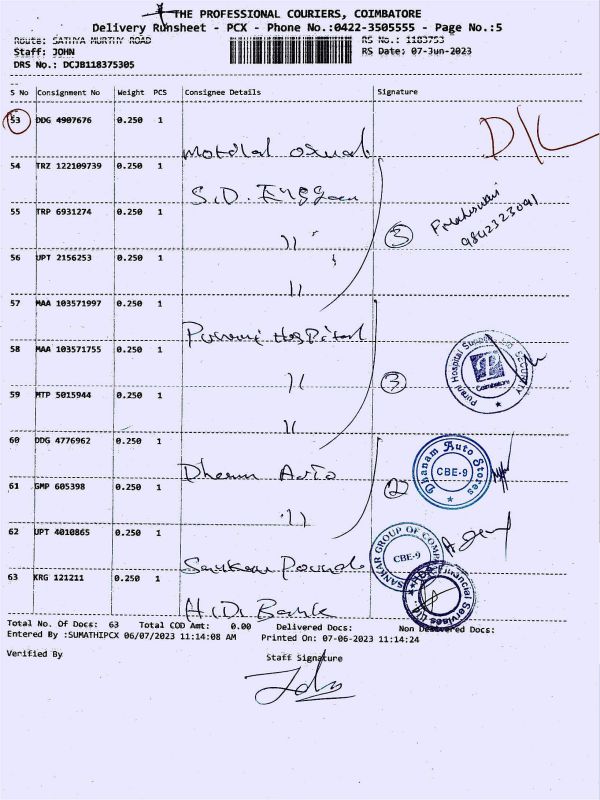 THE PROFESSIONAL COURIERS, COIMBATORE
Delivery Runsheet - PCX - Phone No.:0422-3505555 - Page No.:5
Route: SATHYA MURTHY ROAD
RS No.: 1183753
Staff: JOHN
RS Date: 07-Jun-2023
DRS No.: DCJB118375305
S No Consignment No Weight PCS Consignee Details Signature
53 DDG 4907676 0.250 1
D/L
54 TRZ 122109739 0.250 1
S.D.
55 TRP 6931274 0.250 1 "
3
9842323091
56 UPT 2156253 0.250 1 "
57 MAA 103571997 0.250 1
Hospital
58 MAA 103571755 0.250 1 "
Purani Hospital Supplies Ltd SECURITY
Coimbatore
59 MTP 5015944 0.250 1 "
3
60 DDG 4776962 0.250 1
Auto
Dhanam Auto Stores
CBE-9
61 GMP 605398 0.250 1 "
2
62 UPT 4010865 0.250 1
SANKAR GROUP OF
CBE-9
63 KRG 121211 0.250 1
Bank
Financial Services Ltd
Total No. Of Docs: 63 Total COD Amt: 0.00 Delivered Docs: Non Delivered Docs:
Entered By :SUMATHIPCX 06/07/2023 11:14:08 AM Printed On: 07-06-2023 11:14:24
Verified By
Staff Signature